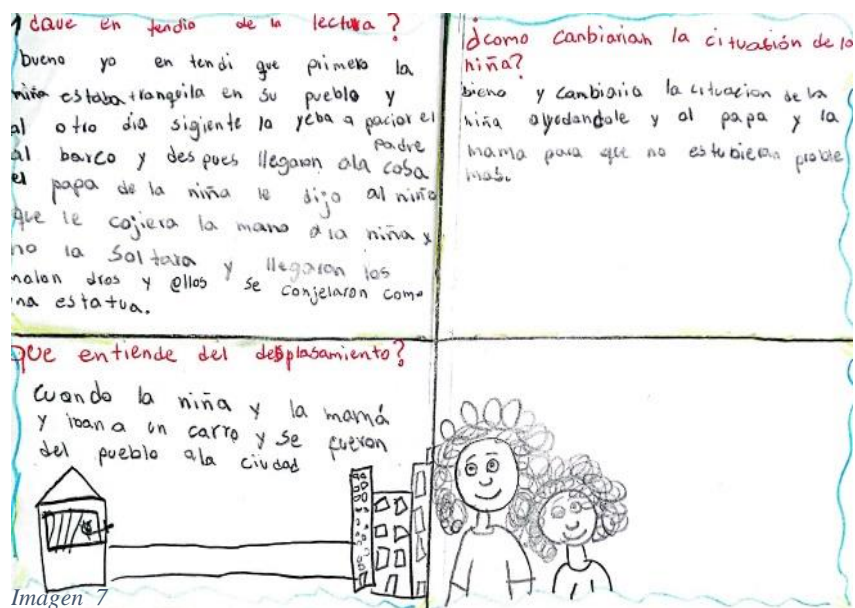 ¿Que en tendio de la lectura?
bueno yo en tendi que primero la
niña estaba tranquila en su pueblo y
al otro dia sigiente la yeba a paciar el
padre
al barco y despues llegaron ala casa
el papa de la niña le dijo al niño
que le cojiera la mano ala niña y
no la Soltara y llegaron los
malan dros y ellos se conjelaron como
una estatua.
¿como canbiarian la cituasión de la
niña?
bieno y canbiaria la cituacion de la
niña ayudandole y al papa y la
mama para que no estubieran proble
mas.
Que entiende del desplasamiento?
Cuando la niña y la mamá
y iban a un carro y se fueron
del pueblo ala ciudad
Imagen 7